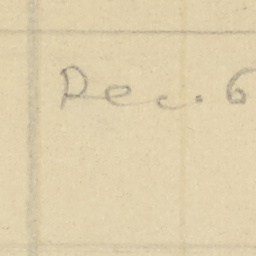 Dec. 6